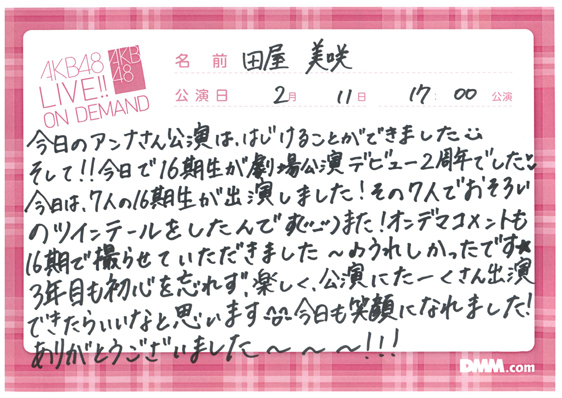 AKB48
LIVE!!
ON DEMAND
AKB
48
名前 田屋 美咲
公演日 2月 11日 17:00 公演
今日のアンナさん公演は、はじけることができました
そして!!今日で16期生が劇場公演デビュー2周年でした♡
今日は、7人の16期生が出演しました!その7人でおそろい
のツインテールをしたんですまた!オンデマコメントも
16期で撮らせていただきました〜うれしかったです★
3年目も初心を忘れず、楽しく、公演にたーくさん出演
できたらいいなと思います 今日も笑顔になれました!
ありがとうございました〜〜〜!!!
DMM.com